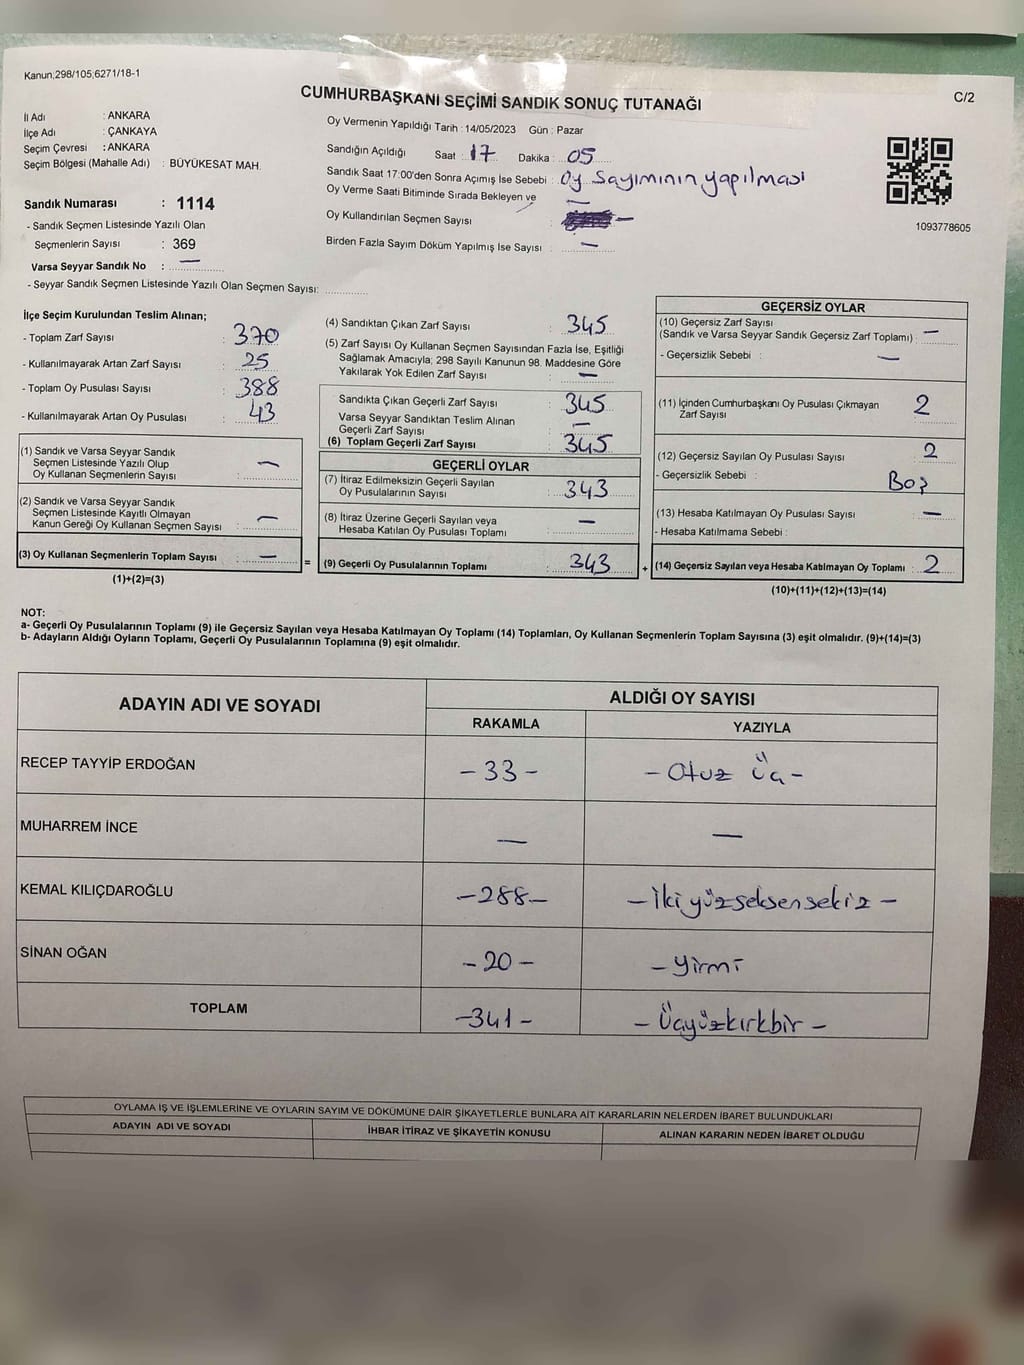 Kanun;298/105;6271/18-1
CUMHURBAŞKANI SEÇİMİ SANDIK SONUÇ TUTANAĞI
C/2
İl Adı : ANKARA
İlçe Adı : ÇANKAYA
Seçim Çevresi : ANKARA
Seçim Bölgesi (Mahalle Adı) : BÜYÜKESAT MAH.
Sandık Numarası : 1114
- Sandık Seçmen Listesinde Yazılı Olan
Seçmenlerin Sayısı : 369
Varsa Seyyar Sandık No : —
- Seyyar Sandık Seçmen Listesinde Yazılı Olan Seçmen Sayısı:
Oy Vermenin Yapıldığı Tarih : 14/05/2023 Gün : Pazar
Sandığın Açıldığı Saat : 17 Dakika : 05
Sandık Saat 17:00'den Sonra Açımış İse Sebebi : Oy Sayımının yapılması
Oy Verme Saati Bitiminde Sırada Bekleyen ve —
Oy Kullandırılan Seçmen Sayısı : —
Birden Fazla Sayım Döküm Yapılmış İse Sayısı : —
1093778605
İlçe Seçim Kurulundan Teslim Alınan;
- Toplam Zarf Sayısı : 370
- Kullanılmayarak Artan Zarf Sayısı : 25
- Toplam Oy Pusulası Sayısı : 388
- Kullanılmayarak Artan Oy Pusulası : 43
(1) Sandık ve Varsa Seyyar Sandık
Seçmen Listesinde Yazılı Olup
Oy Kullanan Seçmenlerin Sayısı : —
(2) Sandık ve Varsa Seyyar Sandık
Seçmen Listesinde Kayıtlı Olmayan
Kanun Gereği Oy Kullanan Seçmen Sayısı : —
(3) Oy Kullanan Seçmenlerin Toplam Sayısı : —
(1)+(2)=(3)
=
(4) Sandıktan Çıkan Zarf Sayısı : 345
(5) Zarf Sayısı Oy Kullanan Seçmen Sayısından Fazla İse, Eşitliği
Sağlamak Amacıyla; 298 Sayılı Kanunun 98. Maddesine Göre
Yakılarak Yok Edilen Zarf Sayısı : —
Sandıkta Çıkan Geçerli Zarf Sayısı : 345
Varsa Seyyar Sandıktan Teslim Alınan
Geçerli Zarf Sayısı : —
(6) Toplam Geçerli Zarf Sayısı : 345
GEÇERLİ OYLAR
(7) İtiraz Edilmeksizin Geçerli Sayılan
Oy Pusulalarının Sayısı : 343
(8) İtiraz Üzerine Geçerli Sayılan veya
Hesaba Katılan Oy Pusulası Toplamı : —
(9) Geçerli Oy Pusulalarının Toplamı : 343
+
GEÇERSİZ OYLAR
(10) Geçersiz Zarf Sayısı
(Sandık ve Varsa Seyyar Sandık Geçersiz Zarf Toplamı) : —
- Geçersizlik Sebebi : —
(11) İçinden Cumhurbaşkanı Oy Pusulası Çıkmayan
Zarf Sayısı 2
(12) Geçersiz Sayılan Oy Pusulası Sayısı 2
- Geçersizlik Sebebi : Boş
(13) Hesaba Katılmayan Oy Pusulası Sayısı : —
- Hesaba Katılmama Sebebi :
(14) Geçersiz Sayılan veya Hesaba Katılmayan Oy Toplamı : 2
(10)+(11)+(12)+(13)=(14)
NOT:
a- Geçerli Oy Pusulalarının Toplamı (9) ile Geçersiz Sayılan veya Hesaba Katılmayan Oy Toplamı (14) Toplamları, Oy Kullanan Seçmenlerin Toplam Sayısına (3) eşit olmalıdır. (9)+(14)=(3)
b- Adayların Aldığı Oyların Toplamı, Geçerli Oy Pusulalarının Toplamına (9) eşit olmalıdır.
ADAYIN ADI VE SOYADI
ALDIĞI OY SAYISI
RAKAMLA YAZIYLA
RECEP TAYYİP ERDOĞAN - 33 - - Otuz Üç -
MUHARREM İNCE — —
KEMAL KILIÇDAROĞLU - 288 - - İkiyüzseksensekiz -
SİNAN OĞAN - 20 - - Yirmi
TOPLAM - 341 - - Üçyüzkırkbir -
OYLAMA İŞ VE İŞLEMLERİNE VE OYLARIN SAYIM VE DÖKÜMÜNE DAİR ŞİKAYETLERLE BUNLARA AİT KARARLARIN NELERDEN İBARET BULUNDUKLARI
ADAYIN ADI VE SOYADI İHBAR İTİRAZ VE ŞİKAYETİN KONUSU ALINAN KARARIN NEDEN İBARET OLDUĞU